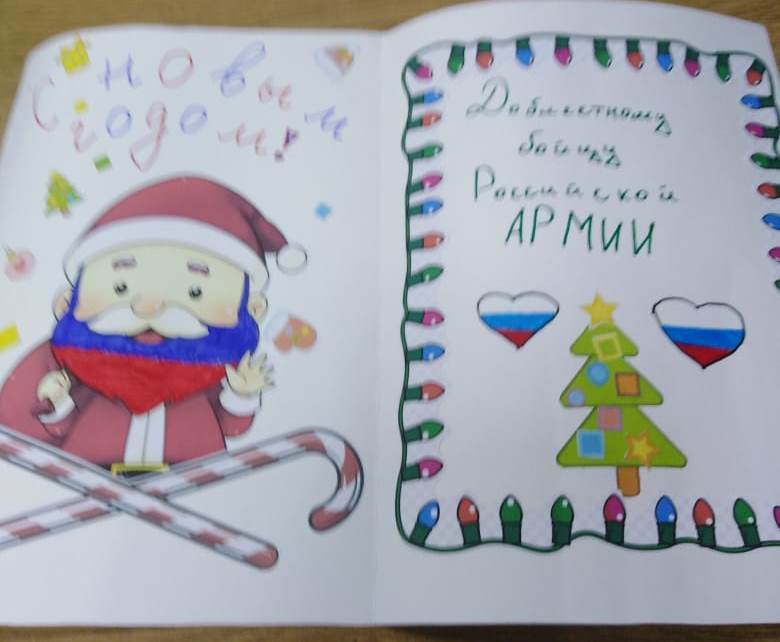 С новым
годом!
Доблестному
бойцу
Российской
АРМИИ